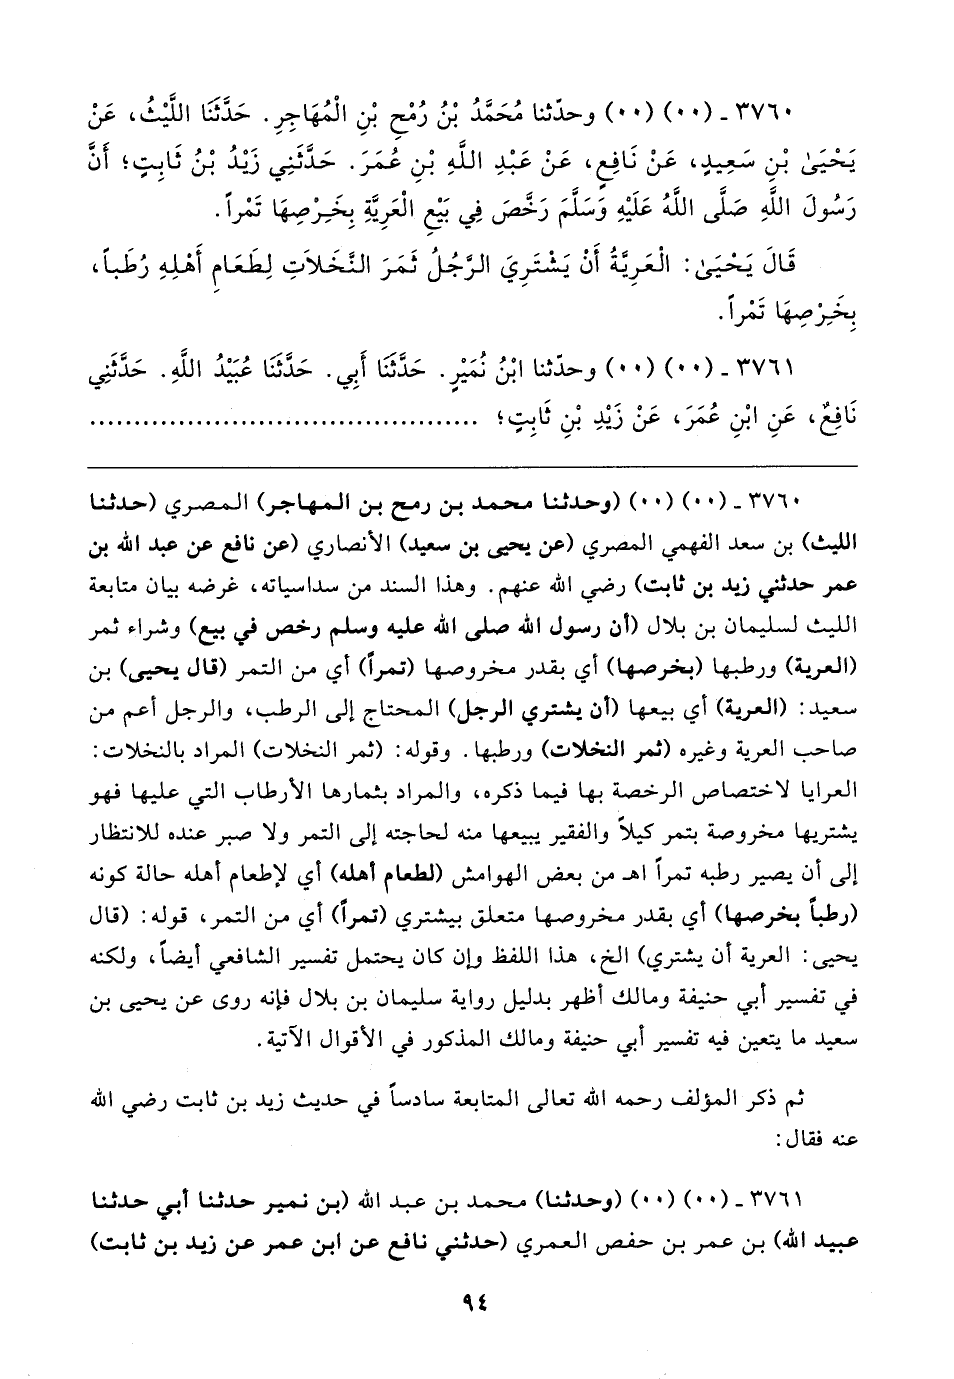 ٣٧٦٠ - (٠٠) (٠٠) وحدّثنا مُحَمَّدُ بْنُ رُمْحِ بْنِ الْمُهَاجِرِ. حَدَّثَنَا اللَّيْثُ، عَنْ
يَحْيَىٰ بْنِ سَعِيدٍ، عَنْ نَافِعٍ، عَنْ عَبْدِ اللَّهِ بْنِ عُمَرَ. حَدَّثَنِي زَيْدُ بْنُ ثَابِتٍ؛ أَنَّ
رَسُولَ اللَّهِ صَلَّى اللَّهُ عَلَيْهِ وَسَلَّمَ رَخَّصَ فِي بَيْعِ الْعَرِيَّةِ بِخَرْصِهَا تَمْراً.
قَالَ يَحْيَىٰ: الْعَرِيَّةُ أَنْ يَشْتَرِيَ الرَّجُلُ ثَمَرَ النَّخَلَاتِ لِطَعَامِ أَهْلِهِ رُطَباً،
بِخَرْصِهَا تَمْراً.
٣٧٦١ - (٠٠) (٠٠) وحدّثنا ابْنُ نُمَيْرٍ. حَدَّثَنَا أَبِي. حَدَّثَنَا عُبَيْدُ اللَّهِ. حَدَّثَنِي
نَافِعٌ، عَنِ ابْنِ عُمَرَ، عَنْ زَيْدِ بْنِ ثَابِتٍ؛ ............................................
٣٧٦٠ - (٠٠) (٠٠) (وحدثنا محمد بن رمح بن المهاجر) المصري (حدثنا
الليث) بن سعد الفهمي المصري (عن يحيى بن سعيد) الأنصاري (عن نافع عن عبد الله بن
عمر حدثني زيد بن ثابت) رضي الله عنهم. وهذا السند من سداسياته، غرضه بيان متابعة
الليث لسليمان بن بلال (أن رسول الله صلى الله عليه وسلم رخص في بيع) وشراء ثمر
(العرية) ورطبها (بخرصها) أي بقدر مخروصها (تمراً) أي من التمر (قال يحيى) بن
سعيد: (العرية) أي بيعها (أن يشتري الرجل) المحتاج إلى الرطب، والرجل أعم من
صاحب العرية وغيره (ثمر النخلات) ورطبها. وقوله: (ثمر النخلات) المراد بالنخلات:
العرايا لاختصاص الرخصة بها فيما ذكره، والمراد بثمارها الأرطاب التي عليها فهو
يشتريها مخروصة بتمر كيلاً والفقير يبيعها منه لحاجته إلى التمر ولا صبر عنده للانتظار
إلى أن يصير رطبه تمراً اهـ من بعض الهوامش (لطعام أهله) أي لإطعام أهله حالة كونه
(رطباً بخرصها) أي بقدر مخروصها متعلق بيشتري (تمراً) أي من التمر، قوله: (قال
يحيى: العرية أن يشتري) الخ، هذا اللفظ وإن كان يحتمل تفسير الشافعي أيضاً، ولكنه
في تفسير أبي حنيفة ومالك أظهر بدليل رواية سليمان بن بلال فإنه روى عن يحيى بن
سعيد ما يتعين فيه تفسير أبي حنيفة ومالك المذكور في الأقوال الآتية.
ثم ذكر المؤلف رحمه الله تعالى المتابعة سادساً في حديث زيد بن ثابت رضي الله
عنه فقال:
٣٧٦١ - (٠٠) (٠٠) (وحدثنا) محمد بن عبد الله (بن نمير حدثنا أبي حدثنا
عبيد الله) بن عمر بن حفص العمري (حدثني نافع عن ابن عمر عن زيد بن ثابت)
٩٤